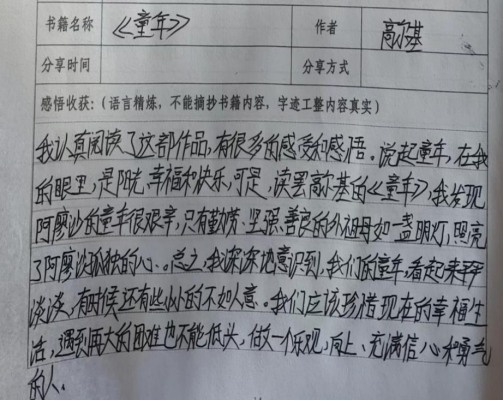 书籍名称 《童年》 作者 高尔基
分享时间 分享方式
感悟收获：(语言精炼，不能摘抄书籍内容，字迹工整内容真实)
我认真阅读了这部作品，有很多的感受和感悟。说起童年，在我
的眼里，是阳光、幸福和快乐，可是，读罢高尔基的《童年》，我发现
阿廖沙的童年很艰辛，只有勤劳、坚强、善良的外祖母如一盏明灯，照亮
了阿廖沙孤独的心。总之，我深深地意识到，我们的童年，看起来平平
淡淡，有时候还有些小小的不如人意。我们应该珍惜现在的幸福生
活，遇到再大的困难也不能低头，做一个乐观、向上、充满信心和勇气
的人。